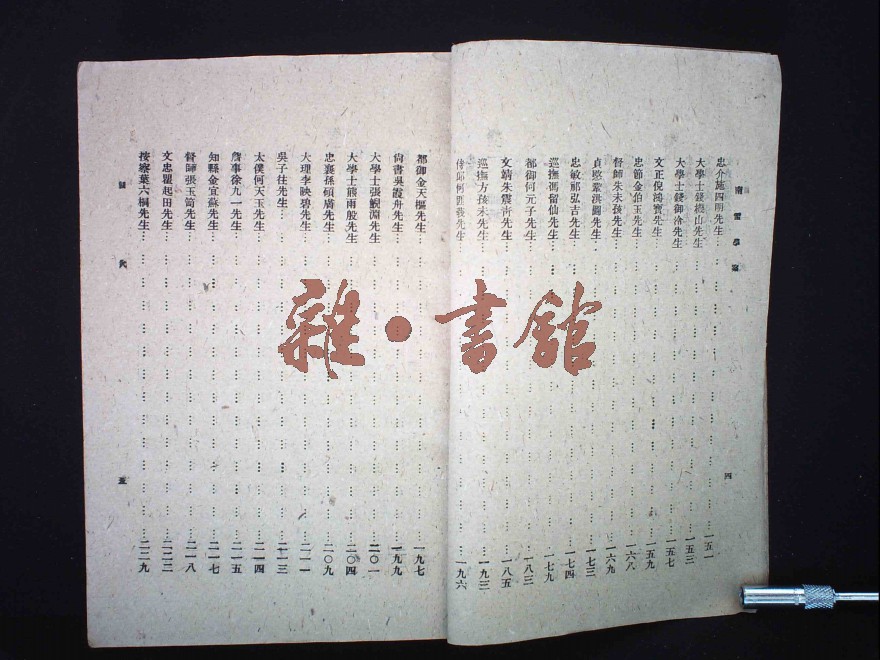 南雷學案
忠介施四明先生……一五一
大學士錢機山先生……一五三
大學士錢御冷先生……一五七
文正倪鴻寶先生……一五九
忠節金伯玉先生……一六八
督師朱未孩先生……一六九
貞愍黎洪闢先生……一七三
忠敏祁弘吉先生……一七四
巡撫馮留仙先生……一七九
都御何元子先生……一八三
文靖朱震青先生……一八五
巡撫方孩未先生……一九三
侍郎何匪莪先生……一九六
四
都御金天樞先生……一九七
尚書吳霞舟先生……一九九
大學士張鯢淵先生……二〇一
大學士熊雨殷先生……二〇四
忠襄孫碩膚先生……二〇九
大理李映碧先生……二一一
吳子往先生……二一三
太僕何天玉先生……二一四
詹事徐九一先生……二一五
知縣金宜蘇先生……二一七
督師張玉笥先生……二一八
文忠瞿起田先生……二二三
按察葉六桐先生……二二九
目次
五
雜·書館